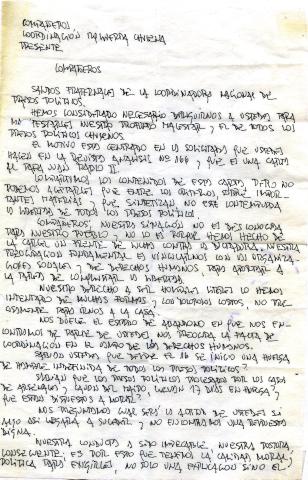 COMPAÑEROS
COORDINACION IZQUIERDA CHILENA
PRESENTE
COMPAÑEROS
SALUDOS FRATERNALES DE LA COORDINADORA NACIONAL DE
PRESOS POLITICOS.
HEMOS CONSIDERADO NECESARIO DIRIGIRNOS A USTEDES PARA
NUESTRO PROFUNDO MALESTAR, Y EL DE TODOS LOS
PRESOS POLITICOS CHILENOS.
EL MOTIVO ESTA CENTRADO EN LA SOLICITADA QUE USTEDES
HACEN EN LA REVISTA ANALISIS NO 166 Y QUE ES UNA CARTA
AL PAPA JUAN PABLO II.
COMPARTIMOS LOS CONTENIDOS DE ESTA CARTA, PERO NO
PODEMOS ACEPTAR QUE ENTRE LOS CRITERIOS, ENTRE IMPOR-
TANTES MATERIAS, QUE SINTETIZAN NO ESTE CONTEMPLADA
LA LIBERTAD DE TODOS LOS PRESOS POLITICOS.
COMPAÑEROS, NUESTRA SITUACION NO ES DESCONOCIDA
PARA NUESTRO PUEBLO. NO LO ES PORQUE HEMOS HECHO DE
LA CARCEL UN FRENTE DE LUCHA CONTRA LA DICTADURA. NUESTRA
PREOCUPACION FUNDAMENTAL ES VINCULARNOS CON LAS ORGANIZA-
CIONES SOCIALES, Y DE DERECHOS HUMANOS, PARA APORTAR A
LA TAREA DE CONQUISTAR LA LIBERTAD.
NUESTRO DERECHO A SER LIBRES LO HEMOS
INTENTADO DE MUCHAS FORMAS, Y LOS DOLOROSOS COSTOS, NO PRE-
CISAMENTE PARA IRNOS A LA CASA.
NOS DUELE EL ESTADO DE ABANDONO EN QUE NOS EN-
CONTRAMOS DE PARTE DE USTEDES. NOS PREOCUPA LA FALTA DE
COORDINACION EN EL CAMPO DE LOS DERECHOS HUMANOS.
SABIAN USTEDES QUE DESDE EL 16 SE INICIO UNA HUELGA
DE HAMBRE INDEFINIDA DE TODOS LOS PRESOS POLITICOS?
SABIAN QUE LOS PRESOS POLITICOS PROCESADOS POR LOS CASOS
DE ARSENALES, Y CAJON DEL MAIPO, LLEVAN 13 DIAS EN HUELGA Y
QUE ESTAN DISPUESTOS A MORIR?
NOS PREGUNTAMOS CUAL SERA LA ACTITUD DE USTEDES SI
ALGO ASI LLEGARA A SUCEDER, Y NO ENCONTRAMOS UNA RESPUESTA
DIGNA.
NUESTRA CONDUCTA A SIDO IMPECABLE, NUESTRA POSTURA
CONSECUENTE; ES POR ESTO QUE TENEMOS LA CALIDAD MORAL Y
POLITICA PARA EXIGIRLES, NO SOLO UNA EXPLICACION SINO EL